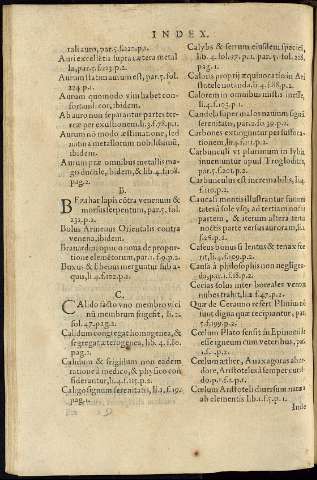 INDEX.
rali auro, par.5.f.221.p.1.
Auri excellētia supra cætera metal
la, par.5.f.223.p.2.
Aurum statua aurum est, par.5.fol.
224 p.1.
Aurum quomodo vim habet con-
fortandi cor, ibidem.
Ab auro nus separantur partes ter-
reæ per exustionem. li.3.f.78.p.1.
Aurum nō modo æstimatione, sed
natura metallorum nobilissimū,
ibidem.
Aurum præ omnibus metallis ma-
go ductile, bidem, & lib 4.f.108.
pag.2.
B.
Bezahar lapis cōtra venenum &
morsus serpentum, par.5.fol.
232.p.2.
Bolus Armenus Orientalis contra
venena, ibidem.
Branardi, opinio noua de propor-
tione elemētorum, par.1.f.9.p.2.
Buxus & Ebenus merguntur sub a-
quis, li 4.f.122.p.1.
C.
Calido facto vno membro vici
nū membrum frigescit, li.2.
fol.47.pag.2.
Calidum congregat homogenea, &
segregat æterogenea, lib.4.f.80.
pag.1.
Calidum & frigidum non eadem
ratione à medico, & physico con
siderantur, li.4.f.115.p.2.
Caligo signum serenitatis, li.2.f.19.
pag.1.
Calybs & ferrum eiusdem speciei,
lib.4.fol.97.p.1. par.5. fol.228.
pag.1.
Caloris propriæ æquiuocatio in Ari
stotele notanda, li.4.f.88.p.2.
Calorem in omnibus mistis inesse,
li.4.f.123.p.1.
Candelis super qua lo natium signū
serenitatis, par.2.fo.39.p.2.
Carbones extinguntur per suffoca-
tionem, li 4.f.111.p.2.
Carbunculi vt plurimum in Lybia
inuenuntur apud Troglodites,
par.5.f.201.p.2.
Carbunculus est incremabilis, li.4.
f.110.p.2.
Caucasi montis illustrantur summi
tates à sole vsq; ad tertiam nocti
partem, & iterum altera tertia
noctis parte versus auroram, li.2
f.28.p.2.
Caseus bonus si lentus & tenax fue
rit, li.4.f.109.p.2.
Causa à philosophis non negligen-
da, par.1.f.18.p.2.
Cecias solus inter boreales ventos
nubes trahit, li.2 f.47.p.2.
Quæ de Ceramo refert Plinius nō
sunt digna quæ recipiantur, par.
5.f.199.p.2.
Cœlum Plato sensit in Epinomide
esse igneum cum veteribus, par.
1.f.2.p.2.
Cœlum æther, Anaxagoras abar-
dore, Aristoteles à semper curren
do.p.1.f.2.p.1.
Cœlum Aristoteli diuersum natura
ab elementis lib.1.f.5.p.1.
Inde